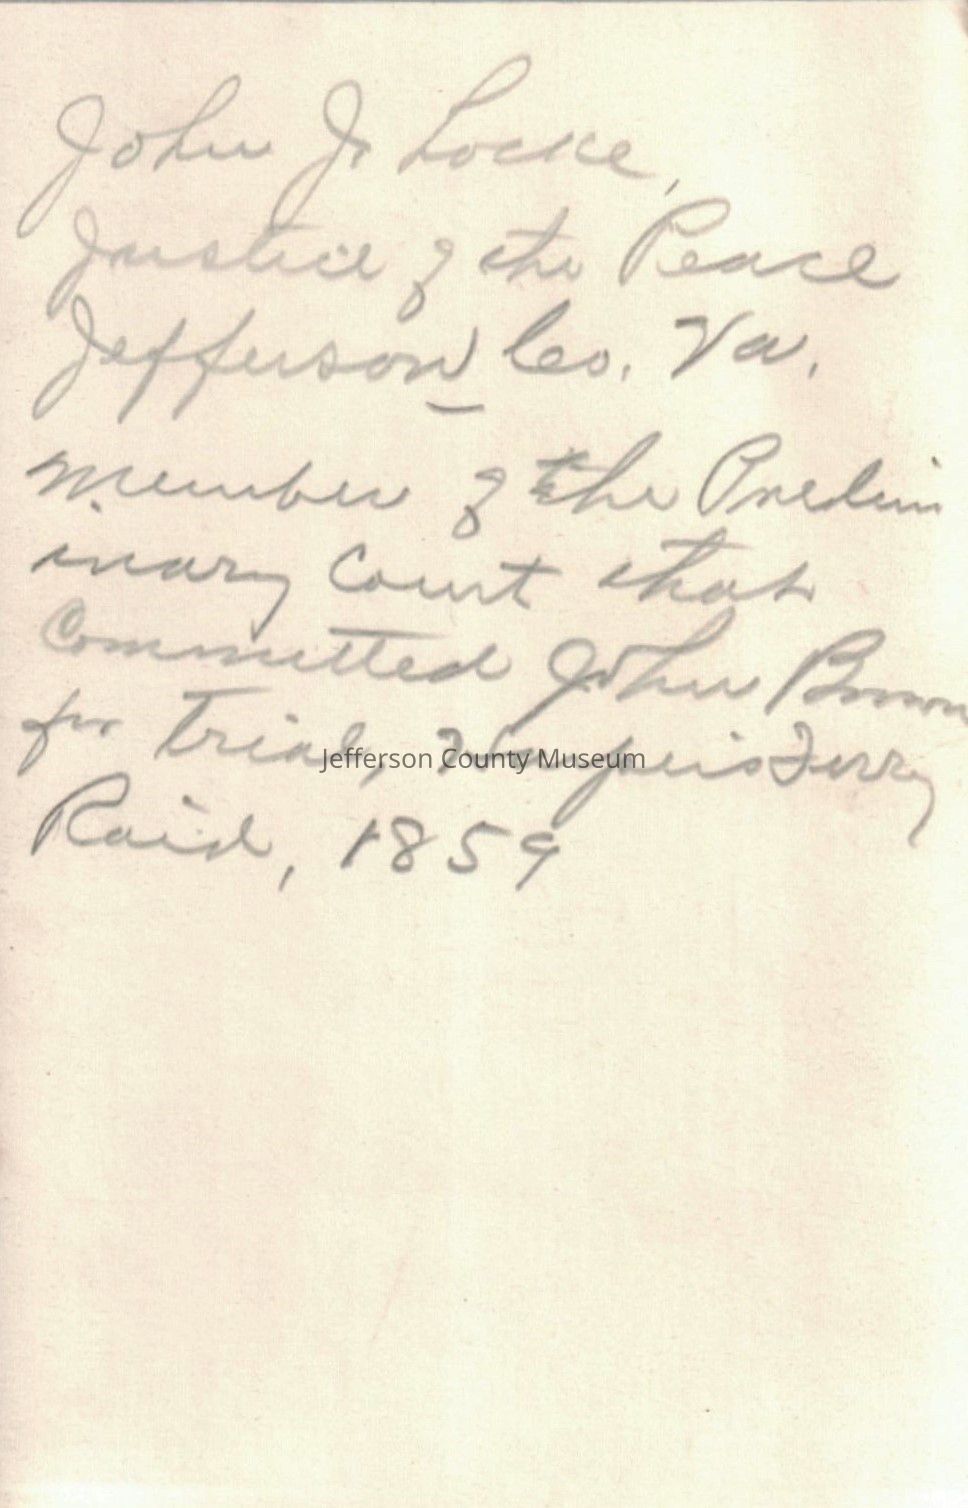 John J. Locke,
Justice of the Peace
Jefferson Co. Va.
Member of the Prelim
inary Court that
Committed John Brown
for Trial, Harpers Ferry
Jefferson County Museum
Raid, 1859